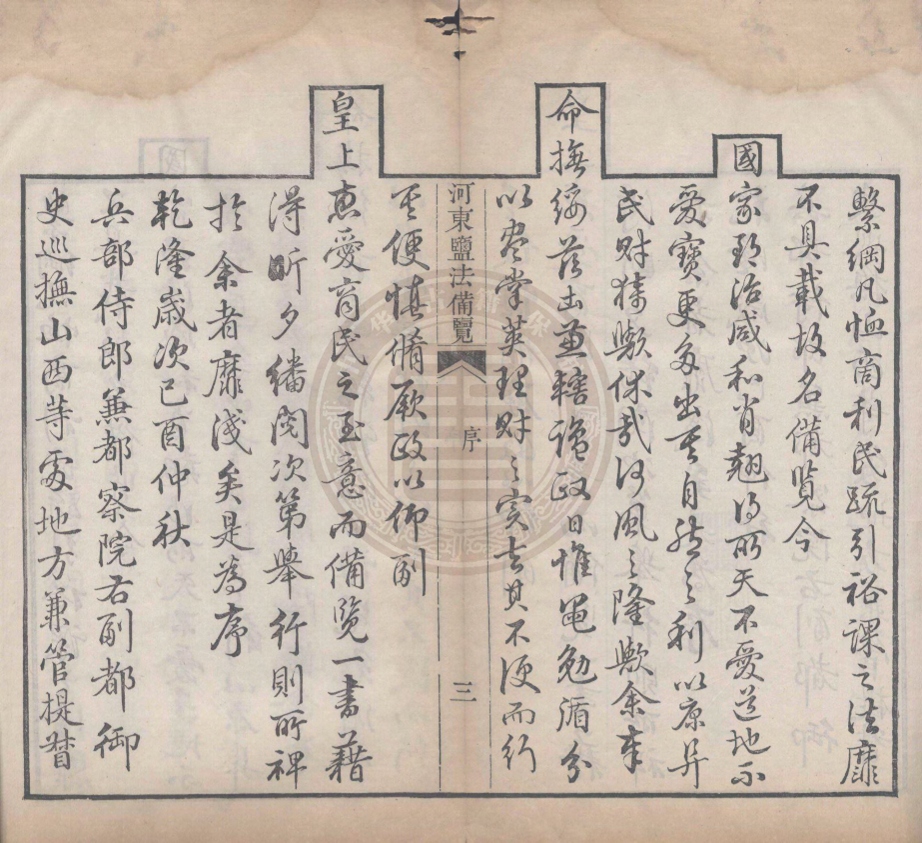 繫綱凡恤商利民疏引裕課之法靡
不具載故名備覽今
國家郅治咸和肖翹得所天不愛道地不
愛寶更多出其自然之利以康
民財猗歟休哉何風之隆歟余奉
命撫綏茲土兼轄鹺政日惟黽勉循分
以盡掌筴理財之實去其不便而行
河東鹽法備覽 序 三
其便慎脩厥政以仰副
皇上惠愛育民之至意而備覽一書藉
得昕夕繙閱次第舉行則所裨
於余者靡淺矣是為序
乾隆歲次己酉仲秋
兵部侍郎兼都察院右副都御
史巡撫山西等處地方兼管提督